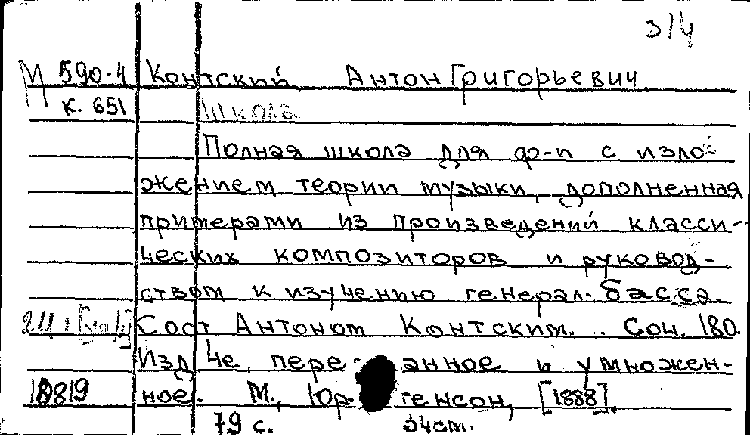 3/4
М 590-4 Контский Антон Григорьевич
К. 651 Школа
Полная школа для ф-п с изло-
жением теории музыки, дополненная
примерами из произведений класси-
ческих композиторов и руковод-
ством к изучению генерал-басса.
Сост Антоном Контским. . Соч. 180.
Изд 4е, пере- анное и умножен-
10819 ное. М., Юр генсон, [1888].
79 с. 34cm.